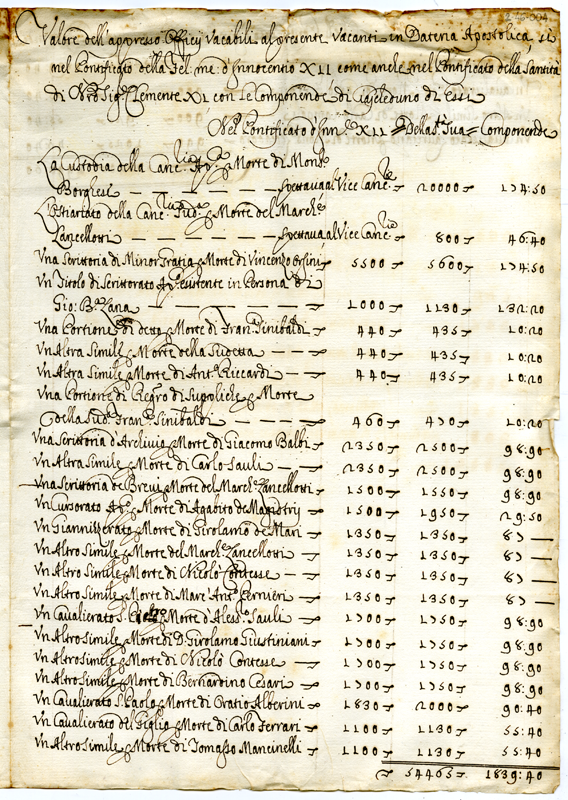 Valore dell'appresso Officij vacabili al presente Vacanti in Dateria Apostolica si
nel Pontificato della fel: me: d'Innocentio XII come anche nel Pontificato della Santità
di Nro Sigre Clemente XI con le Componende di Ciascheduno di Essi
Nel Pontificato d'Inn.° XII = Della St. Sua = Componende
La Custodia della Canc.ria Ap.ca p Morte di Mons.r
Borghese — — — — Spettava al Vice Canc.re 20000 174:50
Ostiariato della Canc.ria Sud.a p Morte del March.e
Lancellotti — — — — Spettava al Vice Canc.rio 800 46:40
Una Scrittoria di Minor Gratia p Morte di Vincenzo Orsini 5500 5600 174:50
Un Titolo di Scrittorato Ap.co esistente in Persona di
Gio: B.a Zana — — — 1000 1130 132:20
Una Portione di detto p Morte di Fran.co Sinibaldi 440 435 10:20
Un Altra Simile p Morte della Sudetta — — 440 435 10:20
Un Altra Simile p Morte di Ant.o Riccardi — 440 435 10:20
Una Portione di Regro di Supoliche p Morte
della Sud.a Fran.ca Sinibaldi — — 460 470 10:20
Una Scrittoria d'Archivio p Morte di Giacomo Balbi 2350 2500 98:90
Un Altra Simile p Morte di Carlo Sauli — — 2350 2500 98:90
Una Scrittoria de Brevi p Morte del March.e Lancellotti 1500 1550 98:90
Un Cursorato Ap.co p Morte di Agabito de Magistrij 1500 1950 29:50
Un Giannizzerato p Morte di Girolamo de Mari 1350 1350 87 —
Un Altro Simile p Morte del March.e Lancellotti 1350 1350 87 —
Un Altro Simile p Morte di Nicolò Contesse — 1350 1350 87 —
Un Altro Simile p Morte di Marc'Ant.o Cernieri 1350 1350 87 —
Un Cavalierato S. Pietro p Morte d'Aless.o Sauli 1700 1750 98:90
Un Altro Simile p Morte di D. Girolamo Giustiniani 1700 1750 98:90
Un Altro Simile p Morte di Nicolò Contesse — 1700 1750 98:90
Un Altro Simile p Morte di Bernardino Cesari — 1700 1750 98:90
Un Cavalierato S. Paolo p Morte di Oratio Alberini 1830 2000 90:40
Un Cavalierato del Giglio p Morte di Carlo Ferrari 1100 1130 55:40
Un Altro Simile p Morte di Tomasso Mancinelli 1100 1130 55:40
54465 1839:40